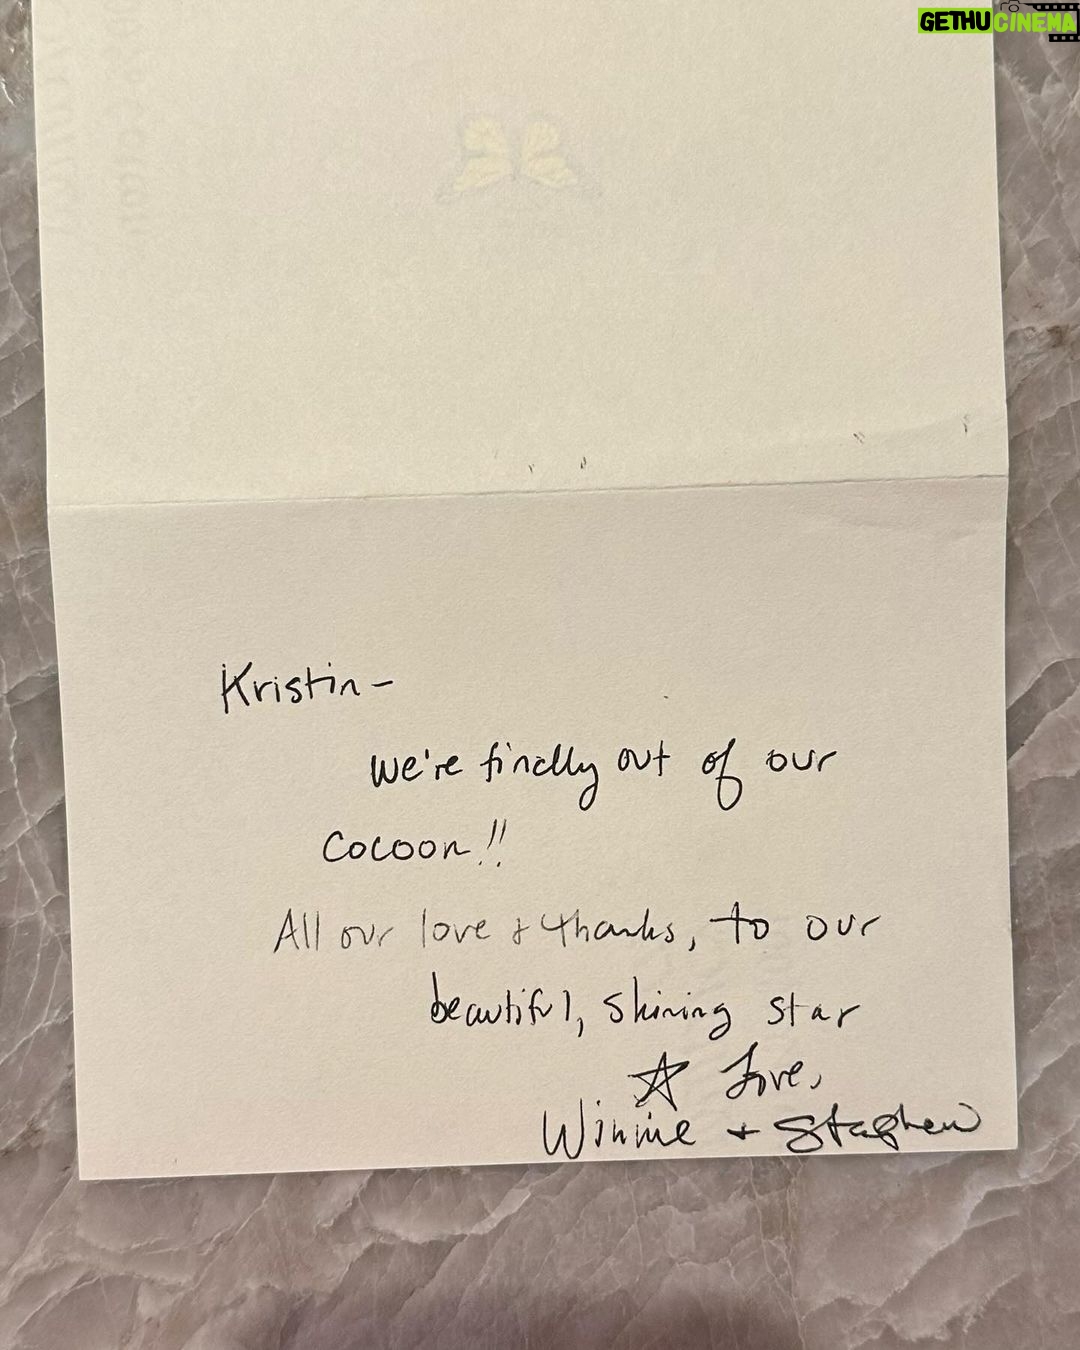 GETHUCINEMA
Kristin-
We're finally out of our
cocoon!!
All our love & thanks, to our
beautiful, shining star
Love,
Winnie + Stephen